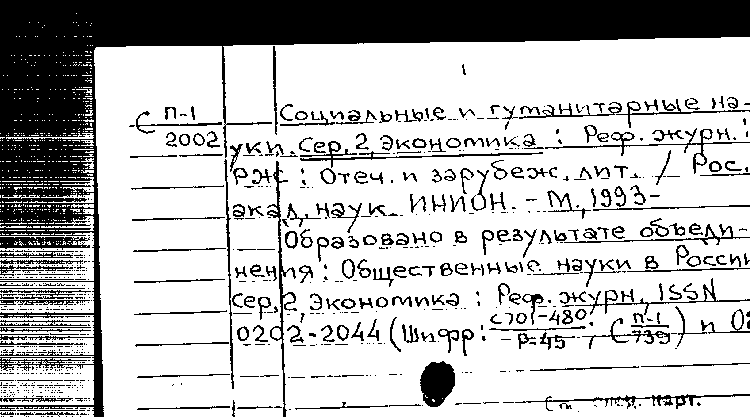 1
С П-1 Социальные и гуманитарные на-
2002 уки. Сер. 2, Экономика : Реф. журн. :
РЖ : Отеч. и зарубеж. лит. / Рос.
акад. наук. ИНИОН. - М., 1993-
Образовано в результате объеди-
нения : Общественные науки в России
Сер. 2, Экономика : Реф. журн., ISSN
0202-2044 (Шифр: С701-480/Р-45 ; С П-1/739) и
См. след. карт.